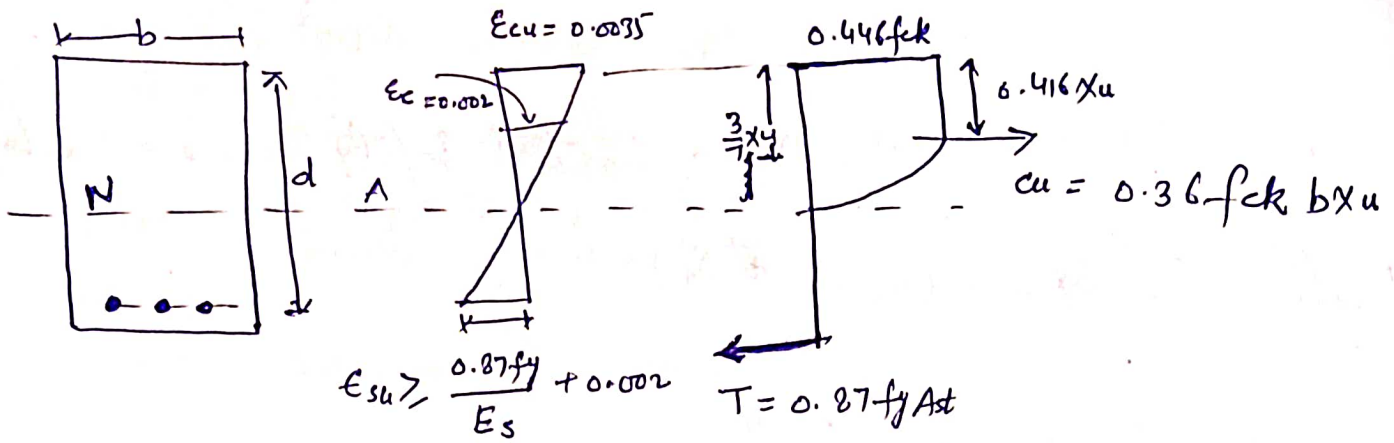 b
Ecu = 0.0035
0.446fck
Ec = 0.002
0.416 Xu
3/7 xu
d
N
A
Cu = 0.36 fck bXu
Esu ≥ 0.87fy/Es + 0.002
T = 0.87 fy Ast